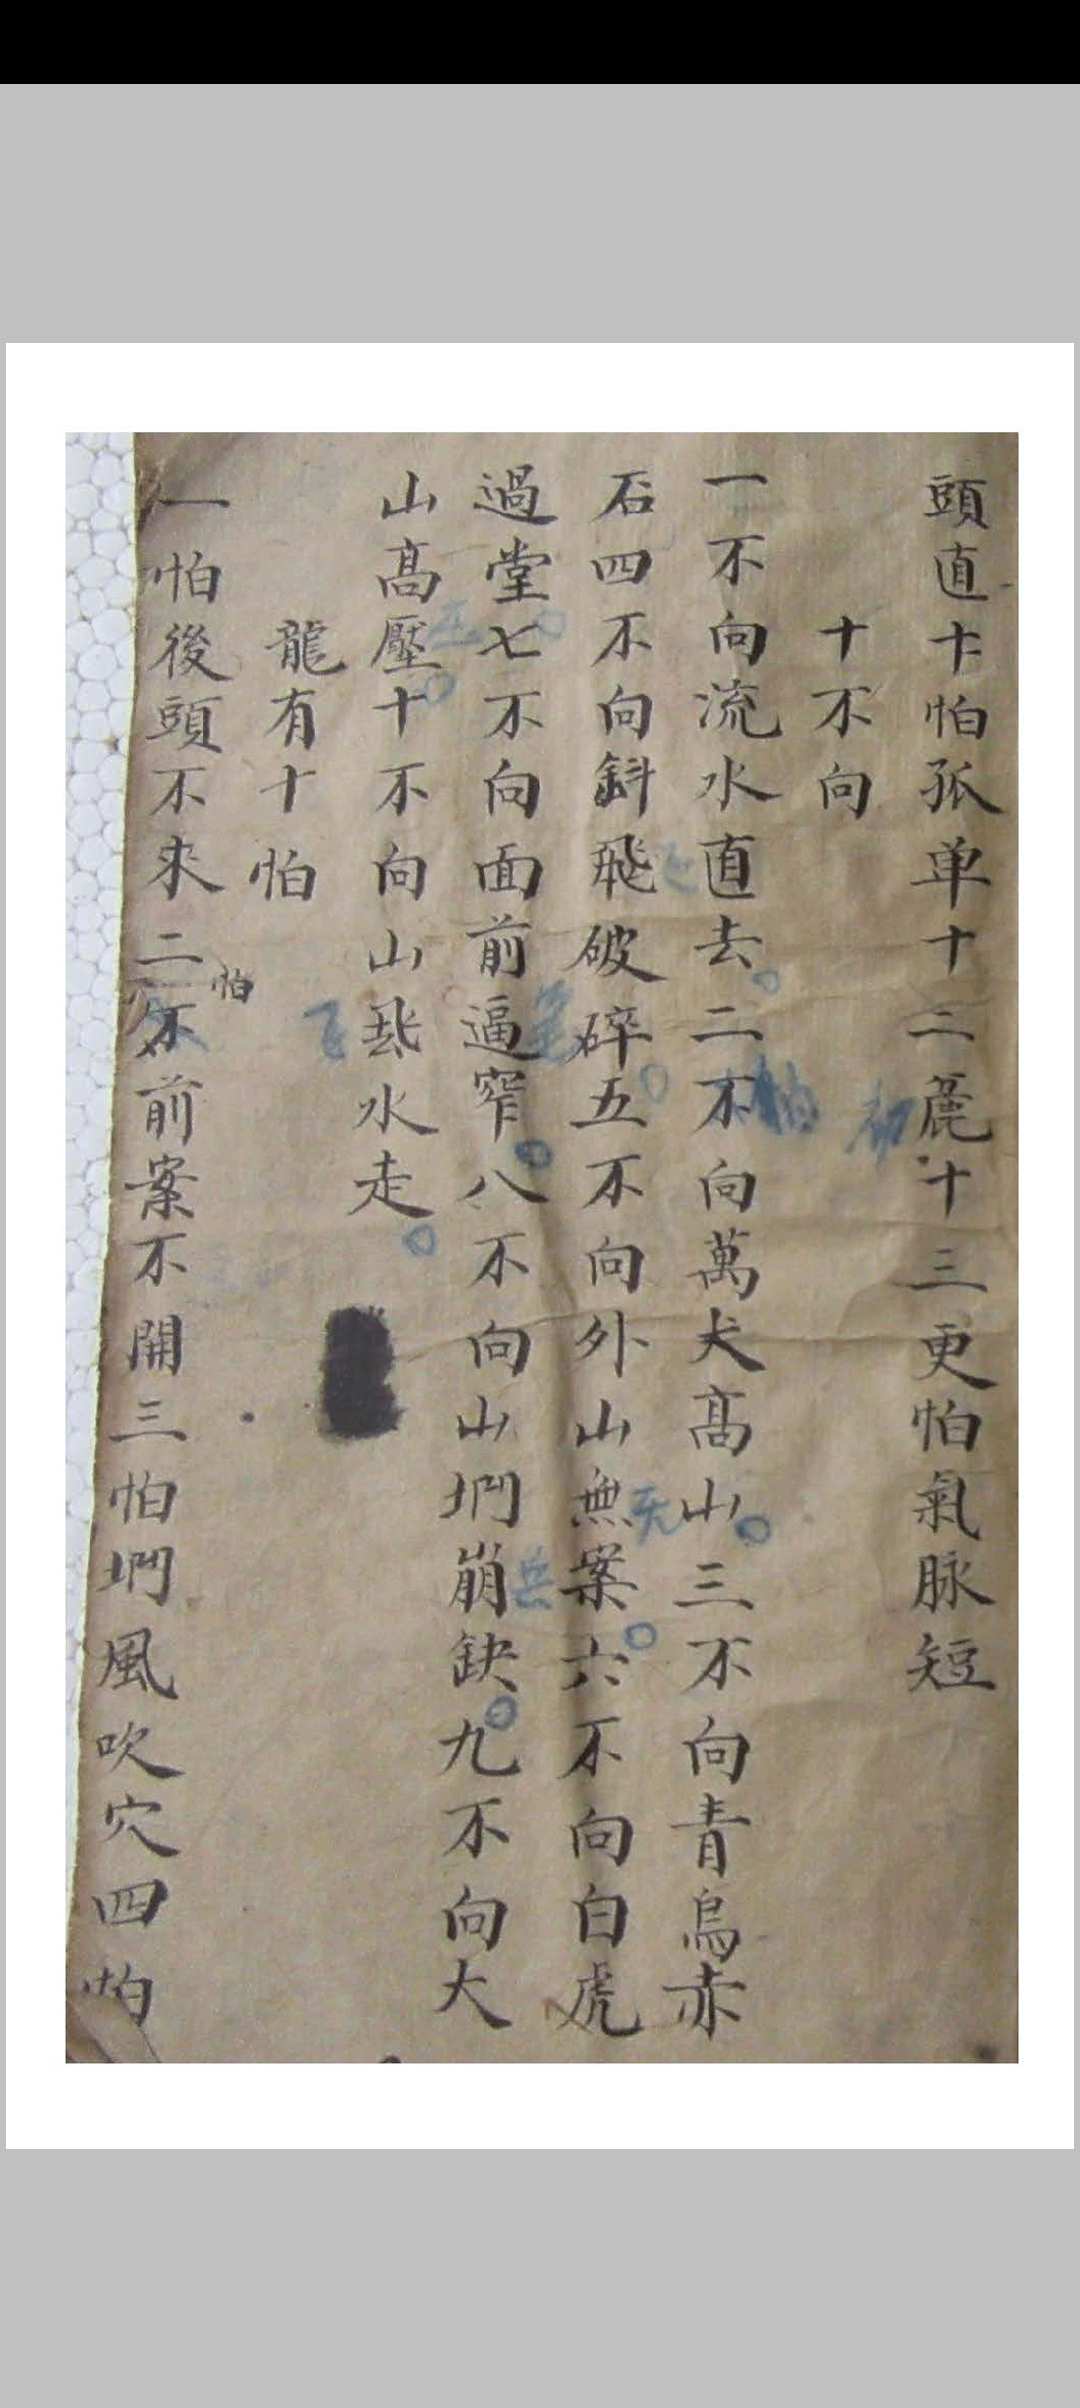 頭直卞怕孤单十二麁十三更怕氣脉短
十不向
一不向流水直去二不向萬犬髙山三不向青烏赤
石四不向斜飛破碎五不向外山無案六不向白虎
過堂七不向面前逼窄八不向山坍崩缺九不向大
山髙壓十不向山飛水走
龍有十怕
一怕後頭不来二怕前案不開三怕坍風吹穴四怕